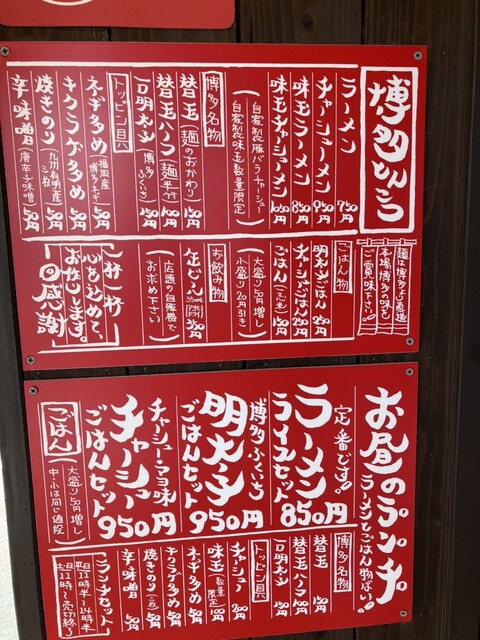 博多とんこつ
ラーメン 750円
チャーシューメン 950円
味玉ラーメン 850円
味玉チャーシューメン 1050円
自家製豚バラチャーシュー
自家製味玉数量限定
博多名物
替玉(麺のおかわり) 150円
替玉ハーフ(麺半分) 100円
明太子(博多ふくいち) 150円
トッピン具
ネギ多め(福岡産博多ネギ) 50円
キクラゲ多め 50円
焼きのり(九州有明産三枚) 50円
辛味噌(唐辛子味噌) 50円
麺は博多より直送
本場博多の味を
ご賞味下さい。
ごはん物
明太ごはん 250円
チャーシューごはん 250円
ごはん
大盛り50円増し
小盛り20円引き
お飲み物
缶ビール
店頭の自販機で
お求め下さい
一杯一杯
心を込めて、
お作りします。
一口感謝
お昼のランチ
ラーメンとごはん物は
定番です。
ラーメン
ライスセット
850円
博多ふくいち
明太子
ごはんセット
950円
チャーシューマヨ味
チャーシュー
ごはんセット
950円
ごはん
大盛り50円増し
中・小は同じ値段
博多名物
替玉 150円
替玉ハーフ 100円
明太子 150円
トッピン具
チャーシュー 200円
味玉(数量限定) 100円
ネギ多め 50円
キクラゲ多め 50円
焼きのり(三枚) 50円
ランチセット
平日11時半〜14時半
土日11時〜売切終了